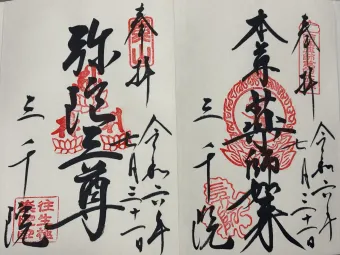 奉拝
本尊薬師如来
令和六年
七月三十一日
三千院
奉拝
弥陀三尊
令和六年
七月三十一日
三千院
往生極楽院